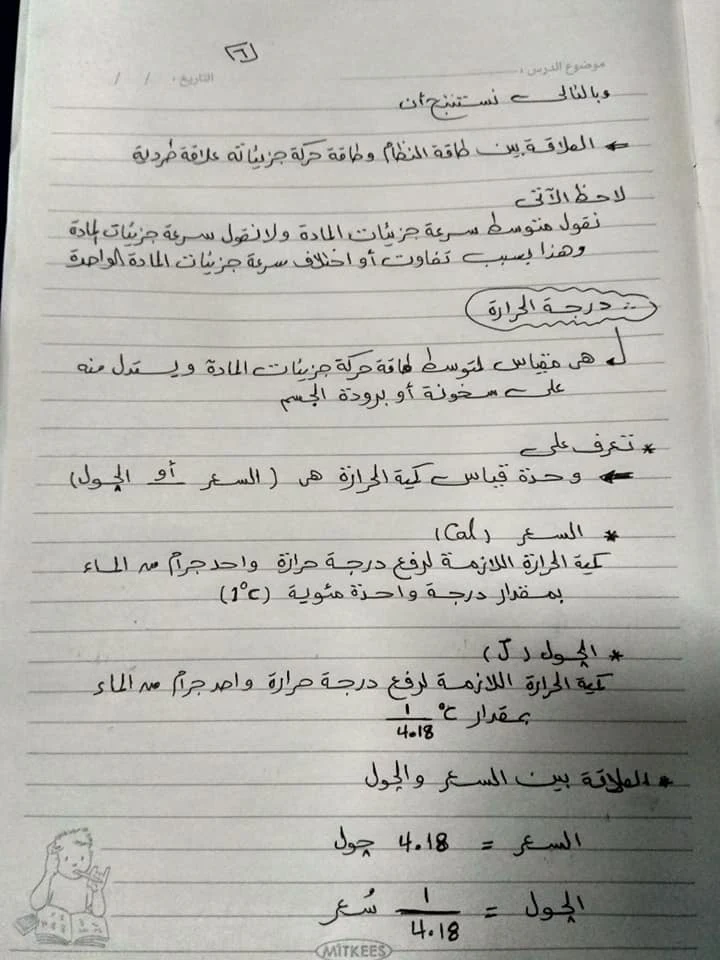 [٦]
موضوع الدرس :
التاريخ : / /
وبالتالى نستنتج أن
← العلاقة بين طاقة النظام وطاقة حركة جزيئاته علاقة طردية
لاحظ الآتى
نقول متوسط سرعة جزيئات المادة ولا نقول سرعة جزيئات المادة
وهذا بسبب تفاوت أو اختلاف سرعة جزيئات المادة الواحدة
درجة الحرارة
هى مقياس لمتوسط طاقة حركة جزيئات المادة ويستدل منه
على سخونة أو برودة الجسم
* تعرف على
← وحدة قياس كمية الحرارة هى (السعر أو الچول)
* السعر (Cal)
كمية الحرارة اللازمة لرفع درجة حرارة واحد جرام من الماء
بمقدار درجة واحدة مئوية (1°C)
* الچول (J)
كمية الحرارة اللازمة لرفع درجة حرارة واحد جرام من الماء
بمقدار 1/4.18 °C
* العلاقة بين السعر والچول
السعر = 4.18 چول
الچول = 1/4.18 سُعر
MITKEES